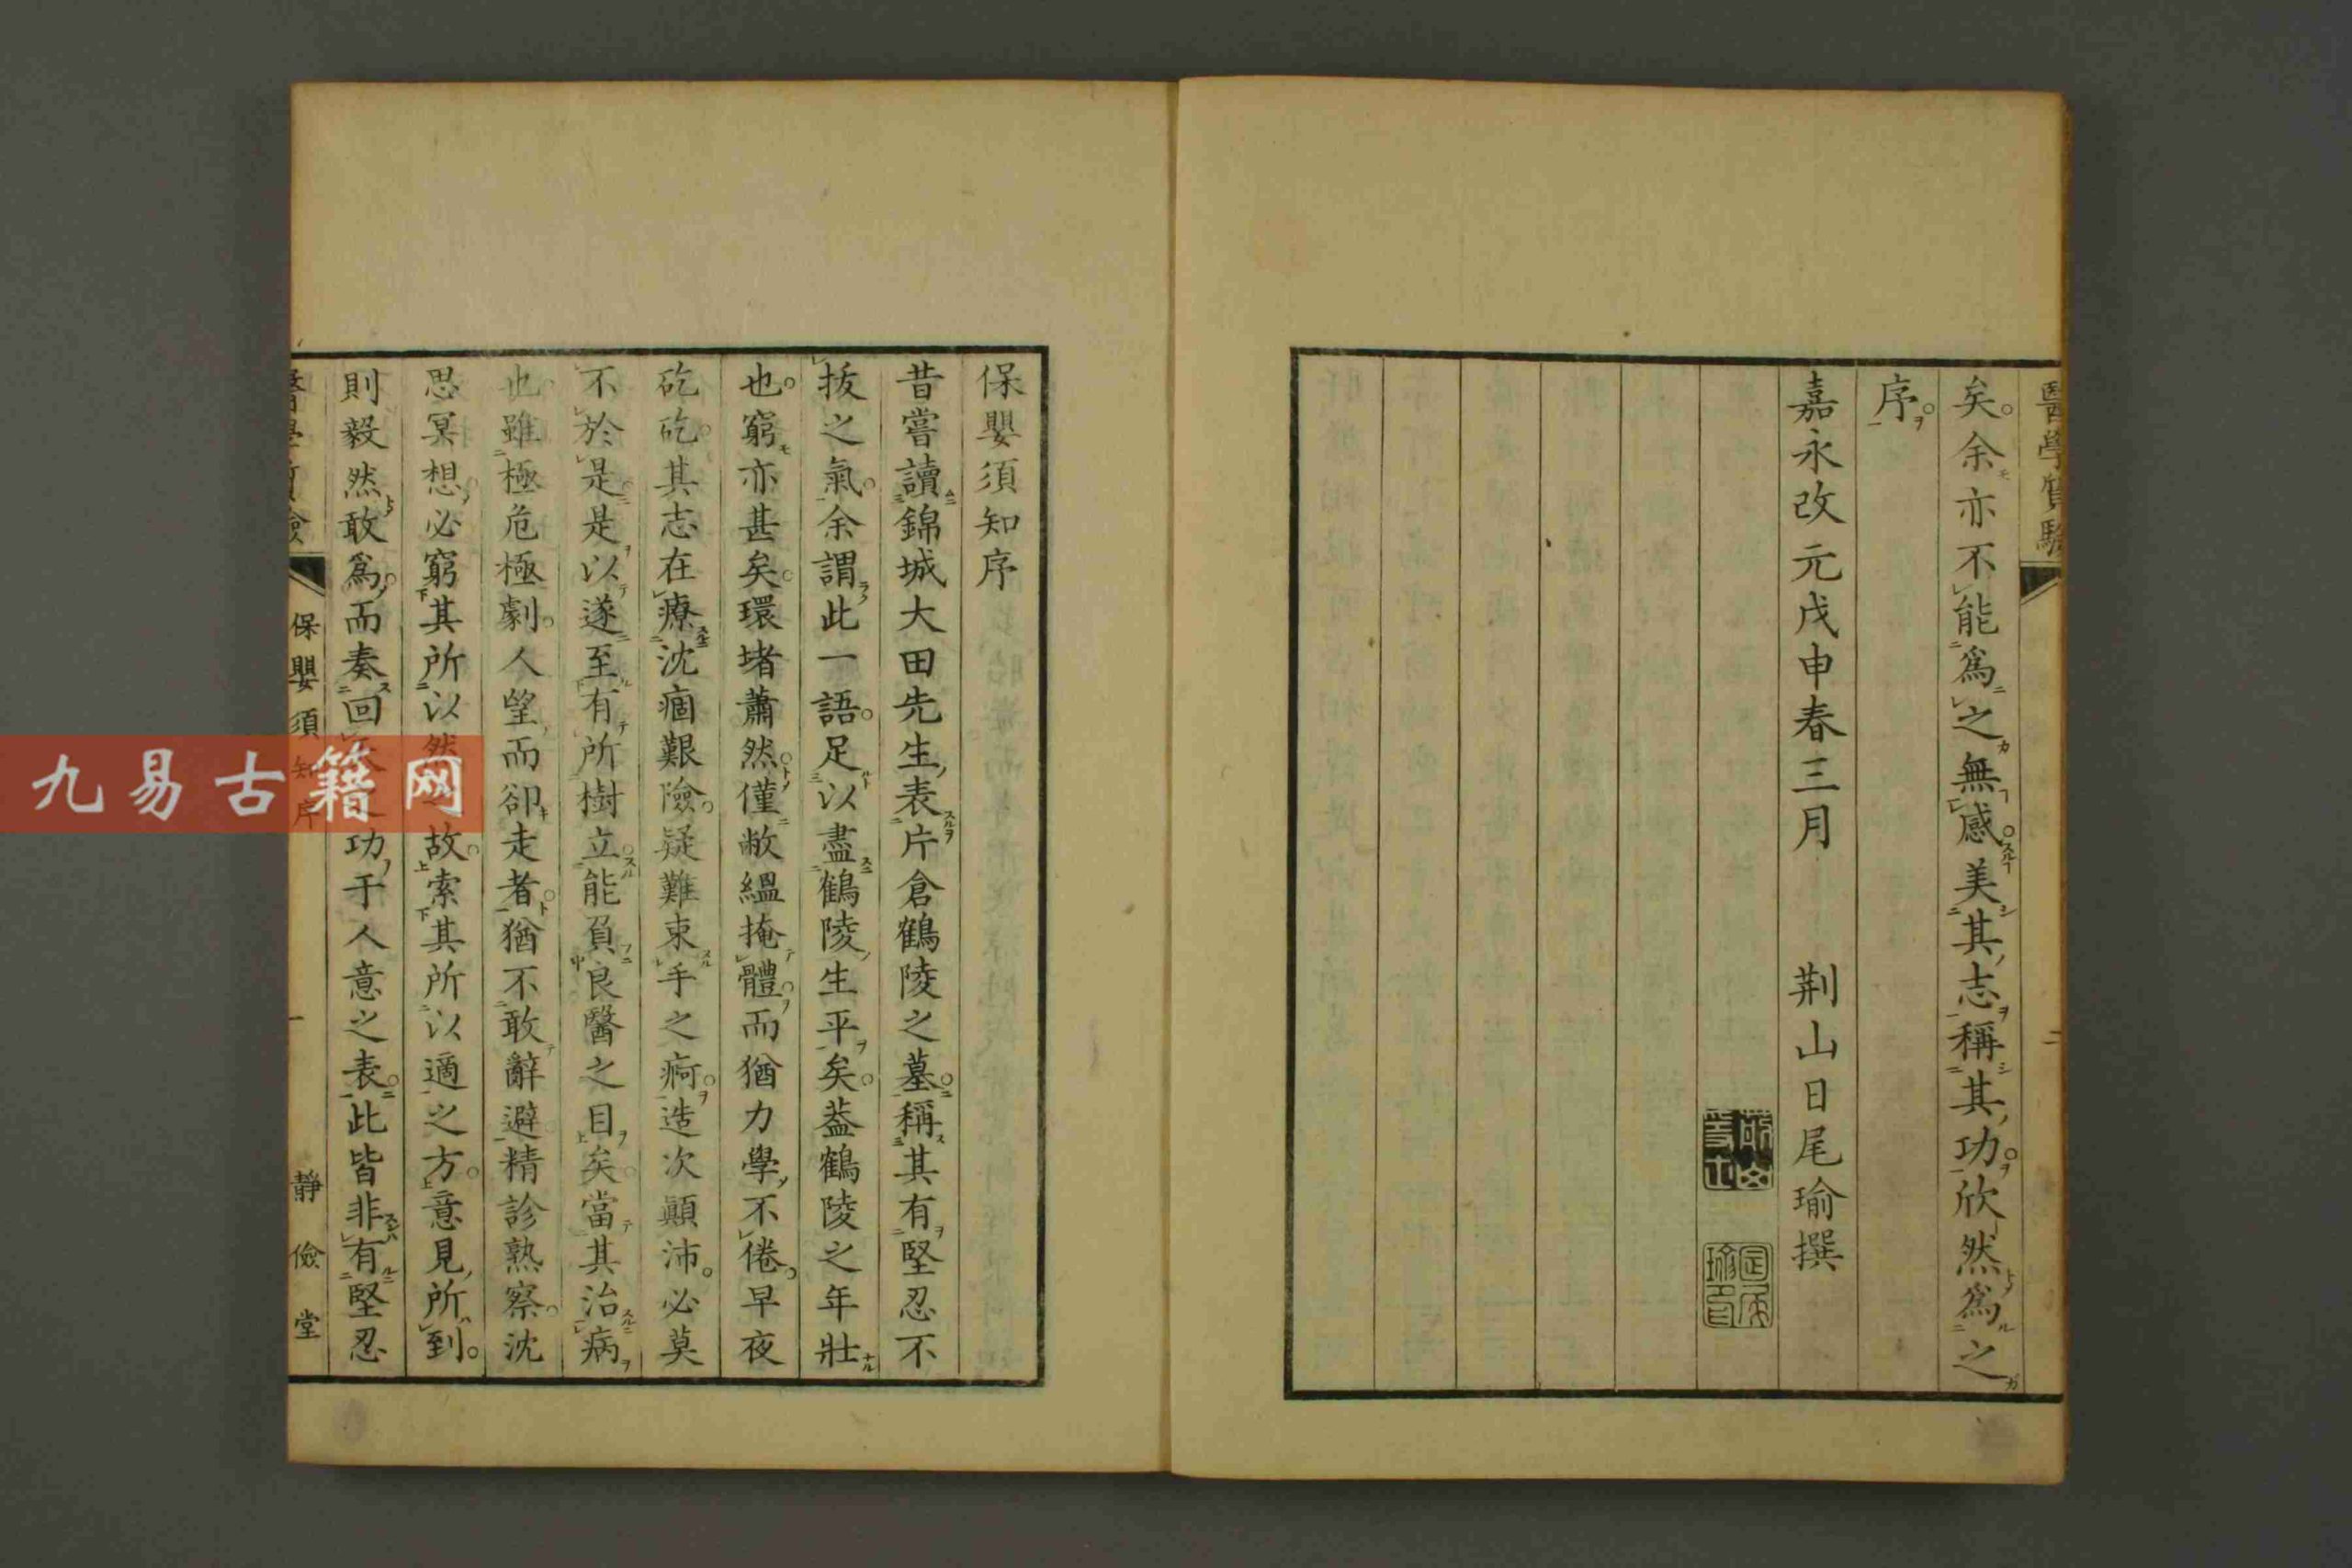 醫學質驗
二
矣。余亦不能爲之無感。美其志稱其功。欣然爲之
序。
嘉永改元戊申春三月 荆山日尾瑜撰
保嬰須知序
昔嘗讀錦城大田先生表片倉鶴陵之墓。稱其有堅忍不
拔之氣。余謂此一語。足以盡鶴陵生平矣。葢鶴陵之年壯
也。窮亦甚矣。環堵蕭然。僅敝縕掩體。而猶力學不倦。早夜
矻矻。其志在療沈痼艱險。疑難束手之痾。造次顚沛。必莫
不於是。是以遂至有所樹立。能負良醫之目矣。當其治病
也。雖極危極劇。人望而卻走者。猶不敢辭避。精診熟察。沈
思冥想。必窮其所以然故。索其所以適之方。意見所到。
則毅然敢爲。而奏回功于人意之表。此皆非有堅忍
醫學質驗
保嬰須知序
一
靜儉堂
九易古籍网